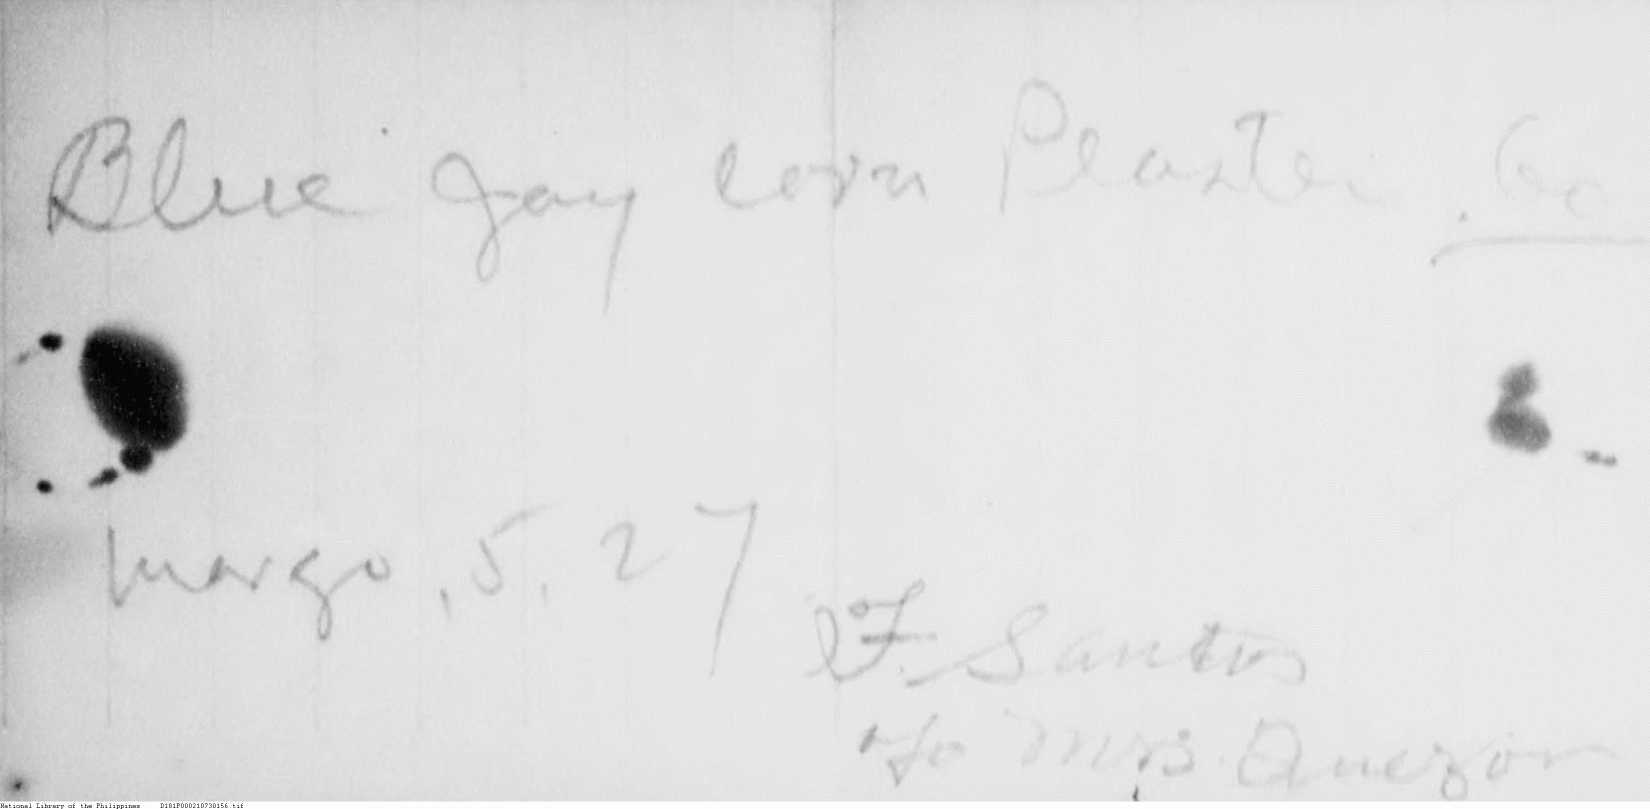 Blue Jay Corn Plaster.
Margo, 5, 27
F. Santos
c/o Mrs. Quezon
National Library of the Philippines D101P000210730156.tif